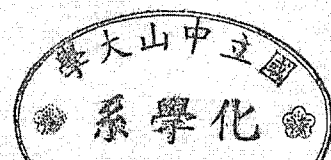 國立中山大學
化學系